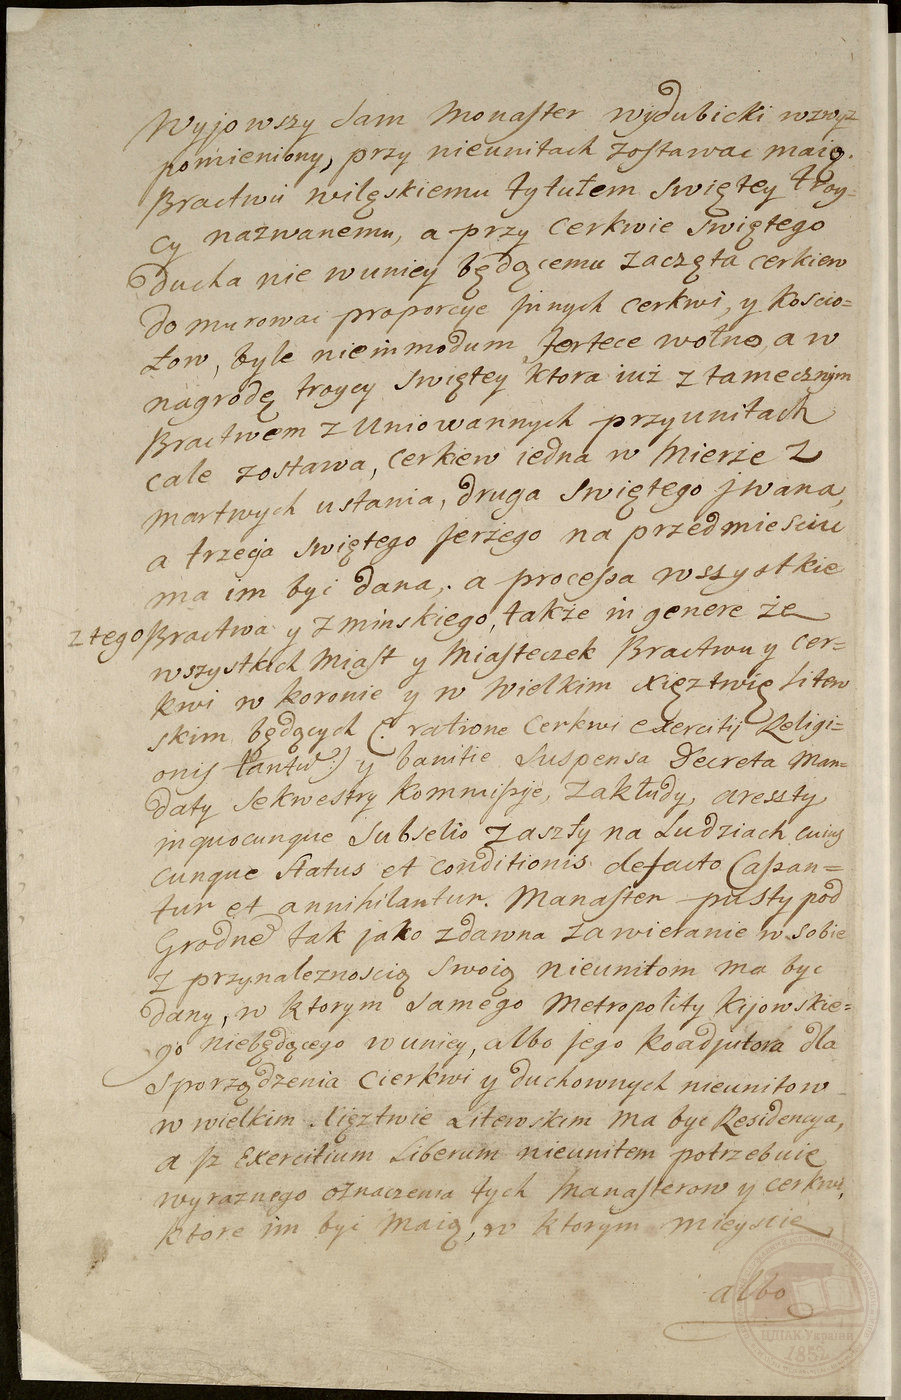 Wyjowszy sam Monaster wydubicki wzwyz
pomieniony, przy nieunitach zostawac maią.
Bractwu wilęskiemu tytułem swiętey troy-
cy nazwanemu, a przy Cerkwie swiętego
ducha nie wuniey będącemu zaczęta cerkiew
do murowac proporcye jnnych cerkwi, y koscio=
łow, byle nie in modum fortece wolno, a w
nagrodę troycy swiętey ktora iuż z tamecznym
Bractwem z Uniowannych przyunitach
cale zostawa, cerkiew iedna w Mierze Z
martwych ustania, druga swiętego jwana,
a trzecia swiętego Jerżego na przedmiesciu
ma im byc dana, a processa wszystkie
z tego Bractwa y z minskiego, także in genere że
wszystkich Miast y Miasteczek Bractwu y Cer-
kwi w koronie y w Wielkim Xięztwię Litew
skim będących (: ratione Cerkwi exercitij Religi=
onis tantu :) y banitie suspensa Decreta Man=
daty sekwestry kommissje, zakłudy, areszty
in quocunque subselio zaszły na Ludziach cuius
cunque status et conditionis de facto Cassan=
tur et annihilantur. Manaster pusty pod
Grodne tak jako zdawna zawieranie w sobie
z przynaleznoscią swoią nieunitom ma byc
dany, w ktorym samego Metropolity kijowskie=
go niebędącego wuniey, albo jego koadjutora dla
sporządzenia Cierkwi y duchownych nieunitow
w wielkim Xięztwie Litewskim ma byc Residencya,
a jż Exercitium Liberum nieunitem potrzebuie
wyraznego oznaczenia tych Manasterow y cerkwi,
ktore im byc maią, w ktorym mieyscie
albo
ЦДІАК України
1852